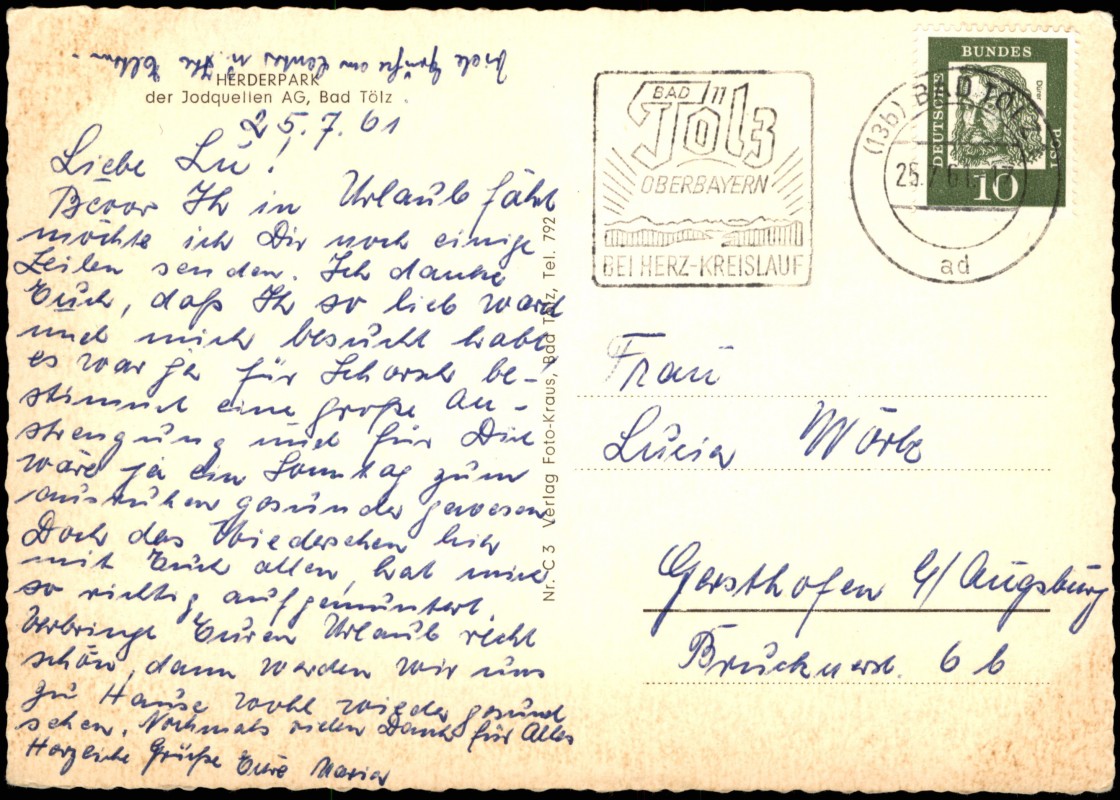 Viele Grüße an
HERDERPARK
der Jodquellen AG, Bad Tölz
25.7.61
Liebe Lu!
Bevor Ihr in Urlaub fährt
möchte ich Dir noch einige
Zeilen senden. Ich danke
Euch, daß Ihr so lieb ward
und mich besucht habt,
es war ja für Schorsch be-
stimmt eine große An-
strengung und für Dich
wäre ja ein Sonntag zum
ausruhen gesünder gewesen
Doch das Wiedersehen hier
mit Euch allen, hat mich
so richtig aufgemuntert.
Verbringt Euren Urlaub recht
schön, dann werden wir uns
zu Hause wohl wieder gesund
sehen. Nochmals vielen Dank für Alles
Herzliche Grüße Eure Maria
Nr. C 3 Verlag Foto-Kraus, Bad Tölz, Tel. 792
BAD
Tölz
OBERBAYERN
BEI HERZ-KREISLAUF
(13b) BAD TÖLZ
25.7.61.-17
ad
DEUTSCHE
BUNDES
POST
Dürer
10
Frau
Lucia Wörle
Gersthofen b/Augsburg
Brucknerstr. 6 b